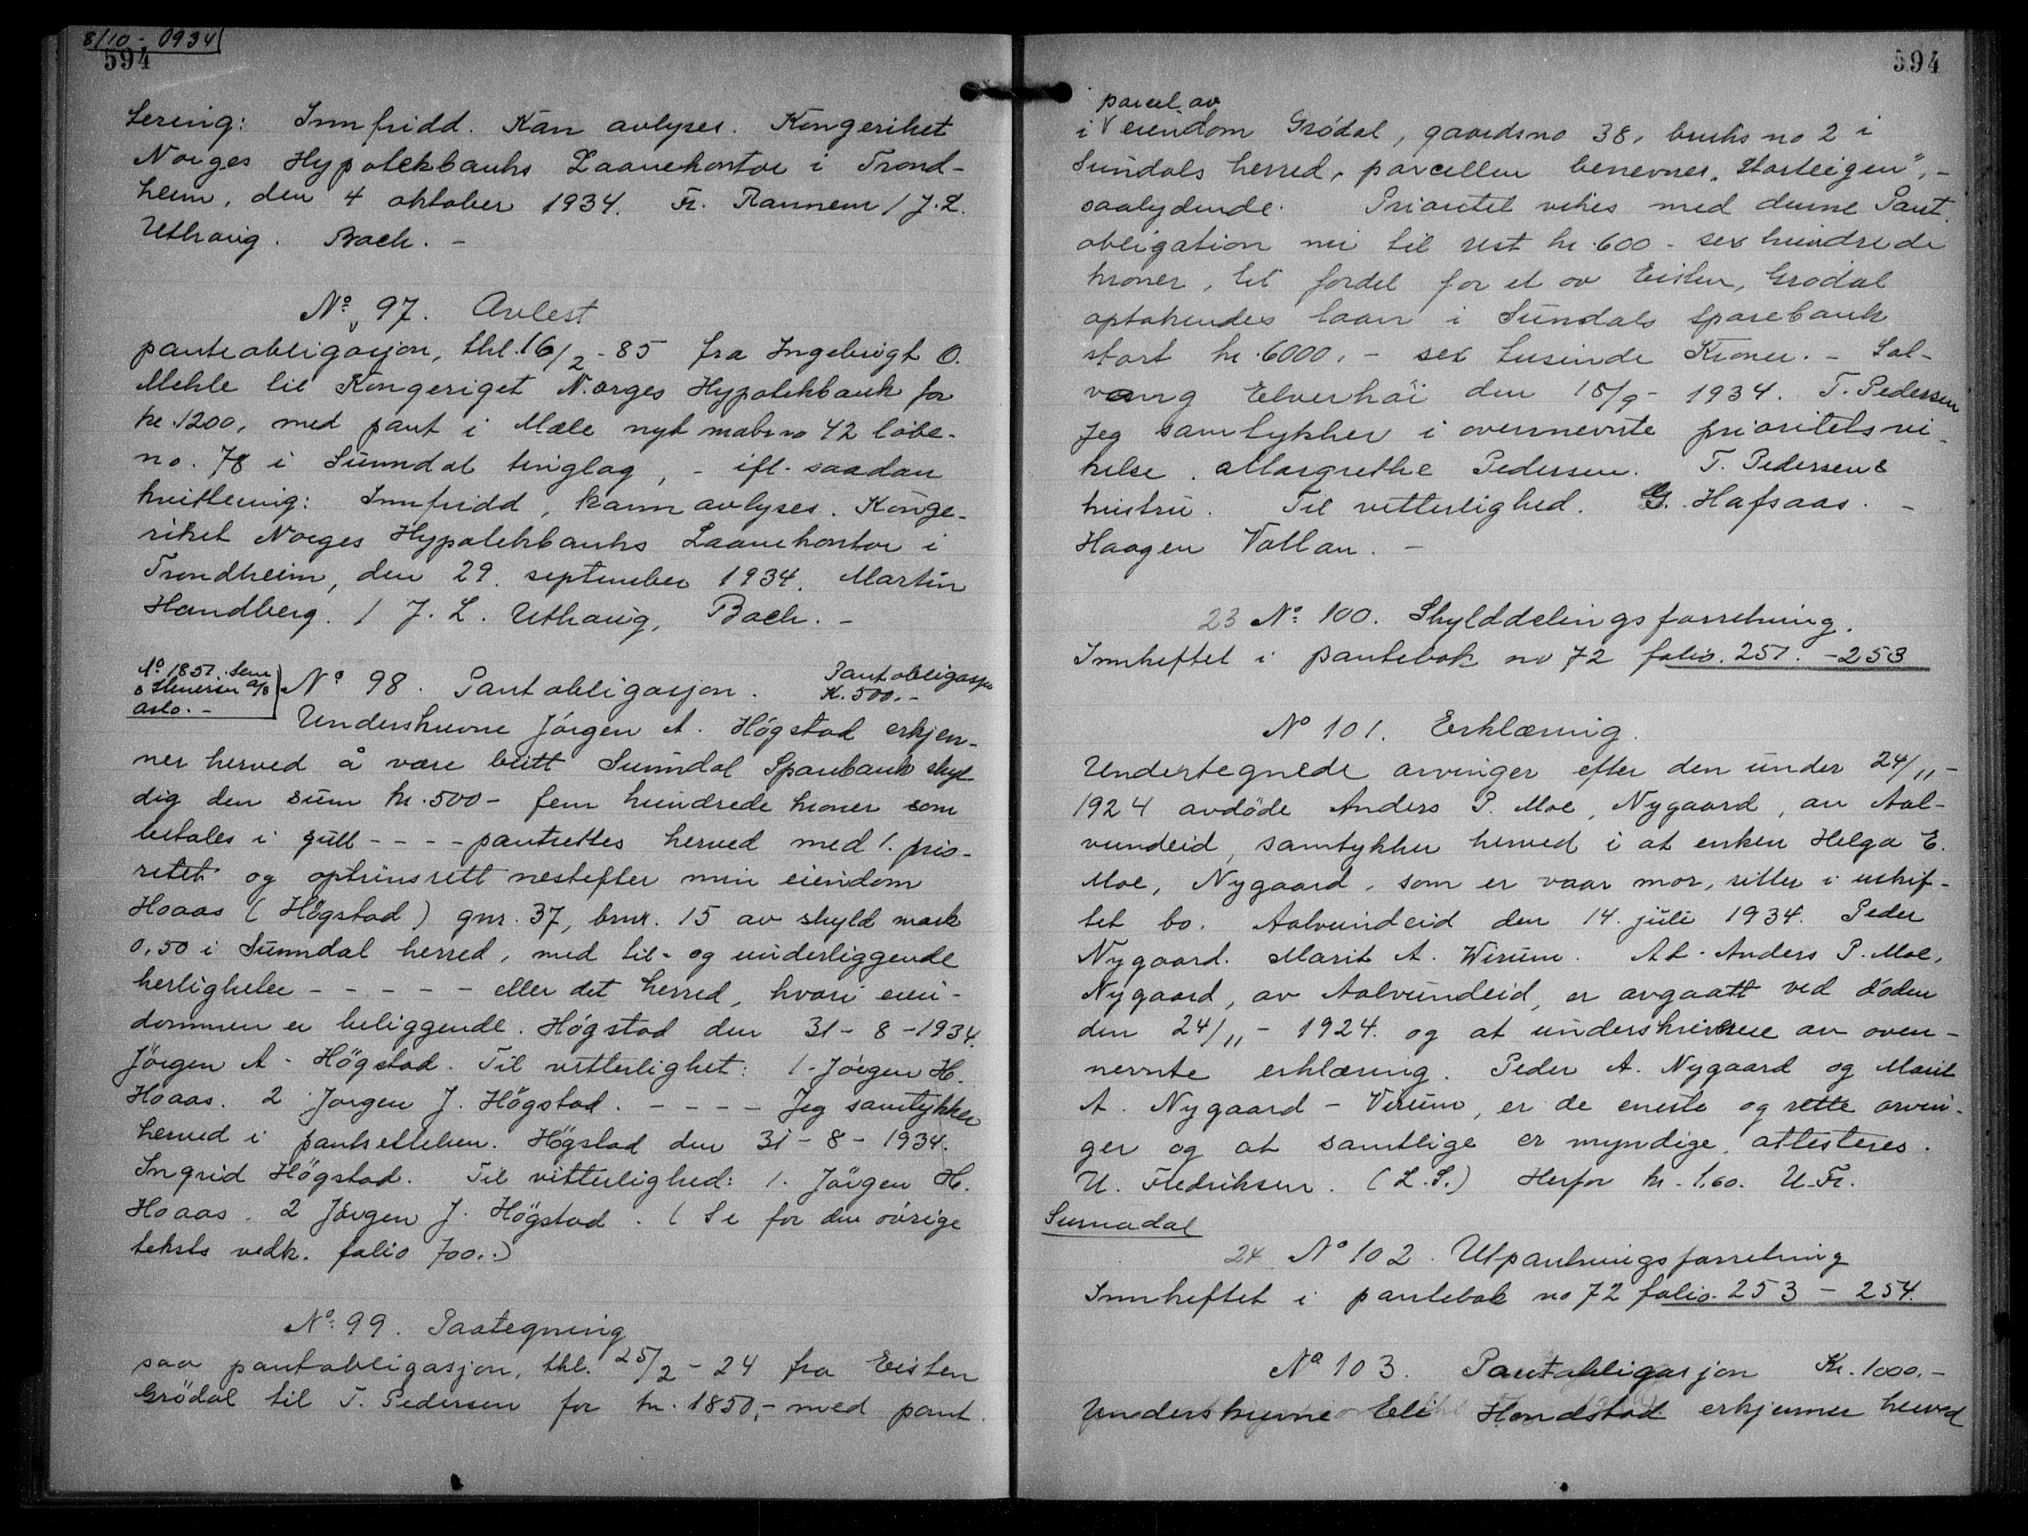 8/10 - 0934
594
tering: Innfridd. Kan avlyses. Kongeriket
Norges Hypotekbanks Laanekontor i Trond-
heim, den 4 oktober 1934. Fr. Rannem / J. L.
Uthaug. Bach. -
No. 97. Avlest
panteobligasjon, thl. 16/2 - 85 fra Ingebrigt O.
Mehle til Kongeriget Norges Hypotekbank for
kr. 1200, med pant i Mæle nyt mabr no 42 løbe-
no. 78 i Sunndal tinglag, - ifl. saadan
kvittering: Innfridd, kann avlyses. Konge-
riket Norges Hypotekbanks Laanekontor i
Trondheim, den 29. september 1934. Martin
Handberg. / J. L. Uthaug, Bach. -
No. 1851. Sem
& Stenersen a/s
Oslo. -
No 98. Pantobligasjon. Pantobligasjon
K. 500.-
Underskrevne Jörgen A. Högstad erkjen-
ner herved å være blitt Sunndal Sparebank skyl
dig den sum kr. 500 - fem hundrede kroner som
betales i gull - - - - pantsettes herved med 1. prio-
ritet og optrinsrett nestefter min eiendom
Hoaas (Högstad) gnr. 37, brnr. 15 av skyld mark
0,50 i Sunndal herred, med til- og underliggende
herligheter - - - - - eller det herred, hvori eien-
dommen er beliggende. Högstad den 31 - 8 - 1934.
Jörgen A. Högstad. Til vitterlighet: 1. Jörgen H.
Hoaas. 2 Jorgen J. Högstad. - - - - Jeg samtykker
herved i pantsettelsen. Högstad den 31 - 8 - 1934.
Ingrid Högstad. Til vitterlighed: 1. Jörgen H.
Hoaas. 2 Jörgen J. Högstad. (Se for den övrige
teksts vedk. folio 700.)
No. 99. Paategning
paa pantobligasjon, thl. 25/2 - 24 fra Eisten
Grödal til T. Pedersen for kr. 1850,- med pant
594
parcel av
i V eiendom Grödal, gaardsno 38, bruks no 2 i
Sundals herred, parcellen benevnes,
saalydende. Prioritet vikes med denne Pant
obligation nu til rest kr. 600 - sex hundrede
kroner, til fordel for et av Eisten, Grødal
optakendes laan i Sundals Sparebank
stort kr. 6000. - sex tusinde Kroner. - Sol-
vang Elverhöi den 18/9 - 1934. T. Pedersen
Jeg samtykker i overnevnte prioritetsvi-
kelse. Margrethe Pedersen. T. Pedersens
hustru. Til vitterlighed. G. Hafsaas. -
Haagen Vollan. -
23 No. 100. Skylddelingsforretning.
Innheftet i pantebok no 72 folio. 251. - 253
No 101. Erklæring.
Undertegnede arvinger efter den under 24/11 -
1924 avdöde Anders P. Moe, Nygaard, av Aal-
vundeid, samtykker herved i at enken Helga E.
Moe, Nygaard, som er vaar mor, sitter i uskif-
tet bo. Aalvundeid den 14. juli 1934. Peder
Nygaard. Marit A. Wirum. At Anders P. Moe,
Nygaard, av Aalvundeid, er avgaatt ved döden
den 24/11 - 1924. og at underskriverne av oven-
nevnte erklæring. Peder A. Nygaard og Marit
A. Nygaard - Virum, er de eneste og rette arvin-
ger og at samtlige er myndige, attesteres.
U. Fredriksen. (L.S.) Herfor kr. 1,60. U. Fr.
Surnadal
24 No 102. Utpantningsforretning
Innheftet i pantebok no 72 folio. 253 - 254.
No 103. Pantobligasjon Kr. 1000.-
Underskrevne Eli Hondstad erkjenner herved